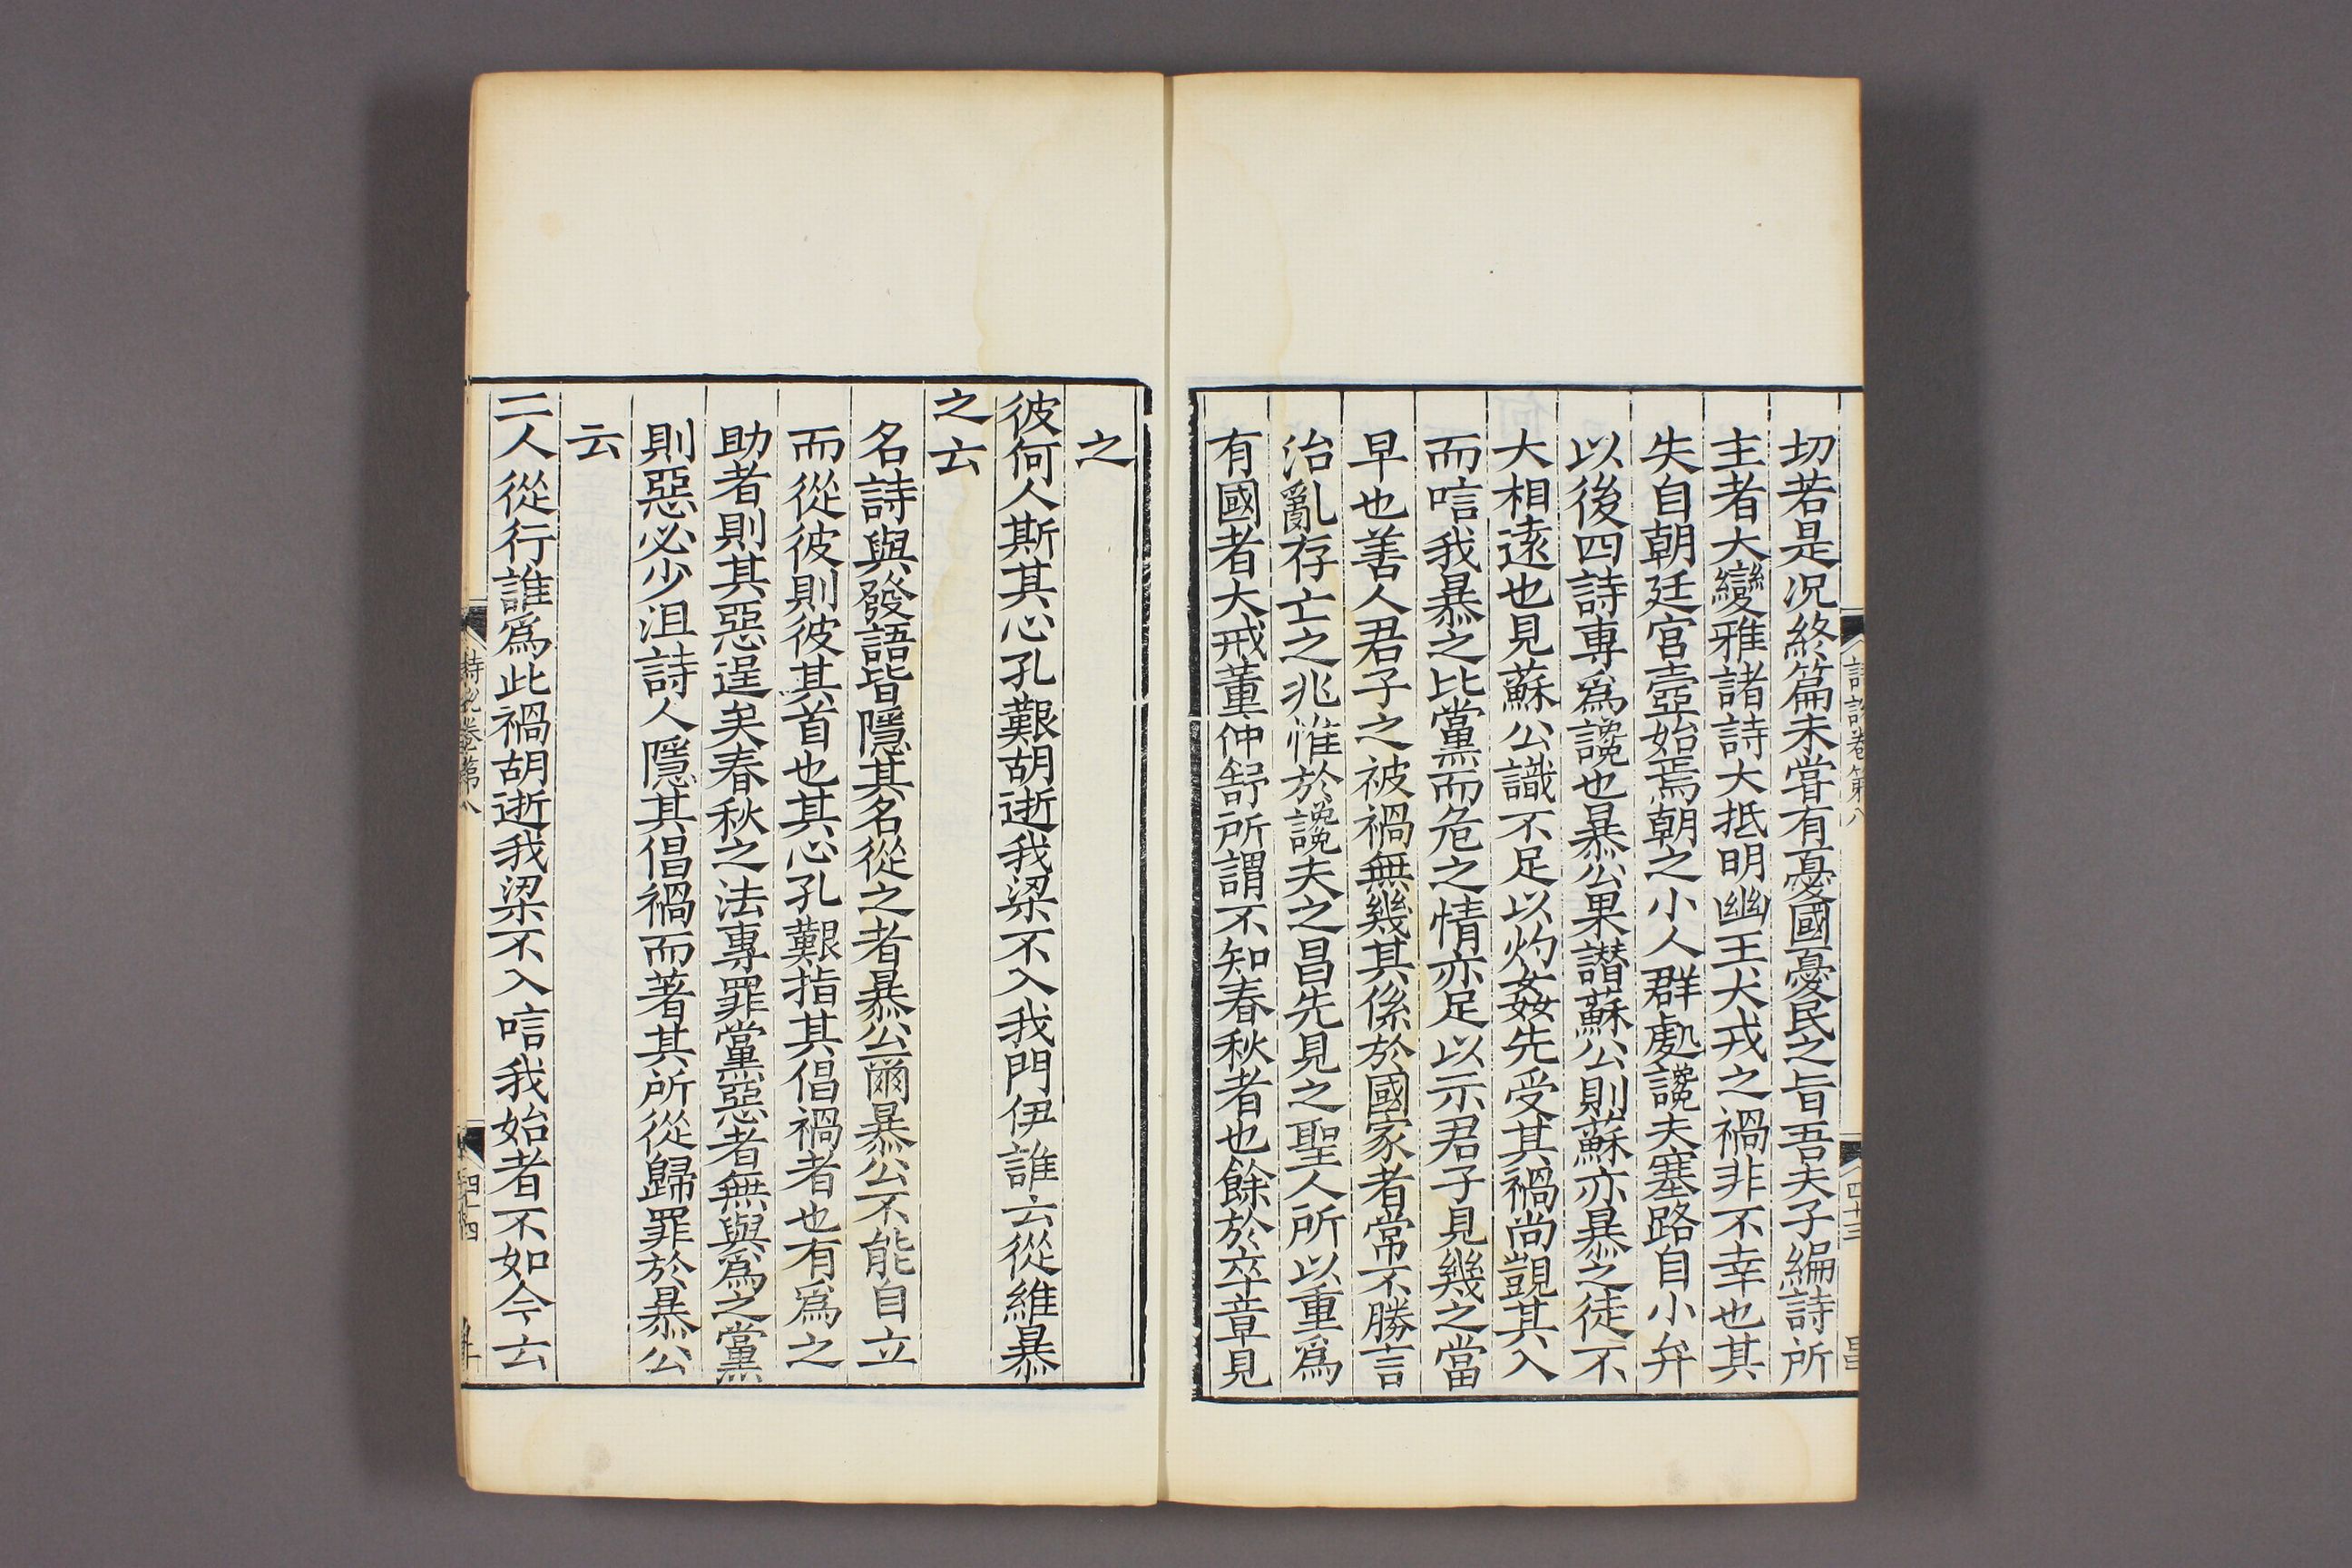 切若是况終篇未甞有憂國憂民之旨吾夫子編詩所
主者大變雅諸詩大抵明幽王犬戎之禍非不幸也其
失自朝廷官壼始焉朝之小人群處讒夫塞路自小弁
以後四詩專爲讒也暴公果譖蘇公則蘇亦暴之徒不
大相遠也見蘇公識不足以灼姦先受其禍尚覬其入
而唁我暴之比黨而危之情亦足以示君子見幾之當
早也善人君子之被禍無幾其係於國家者常不勝言
治亂存亡之兆惟於讒夫之昌先見之聖人所以重爲
有國者大戒董仲舒所謂不知春秋者也餘於卒章見
之
彼何人斯其心孔艱胡逝我梁不入我門伊誰云從維暴
之云
名詩與發語皆隱其名從之者暴公爾暴公不能自立
而從彼則彼其首也其心孔艱指其倡禍者也有爲之
助者則其惡逞矣春秋之法專罪黨惡者無與爲之黨
則惡必少沮詩人隱其倡禍而著其所從歸罪於暴公
云
二人從行誰爲此禍胡逝我梁不入唁我始者不如今云
卷第八
四十三
卷第八
四十四